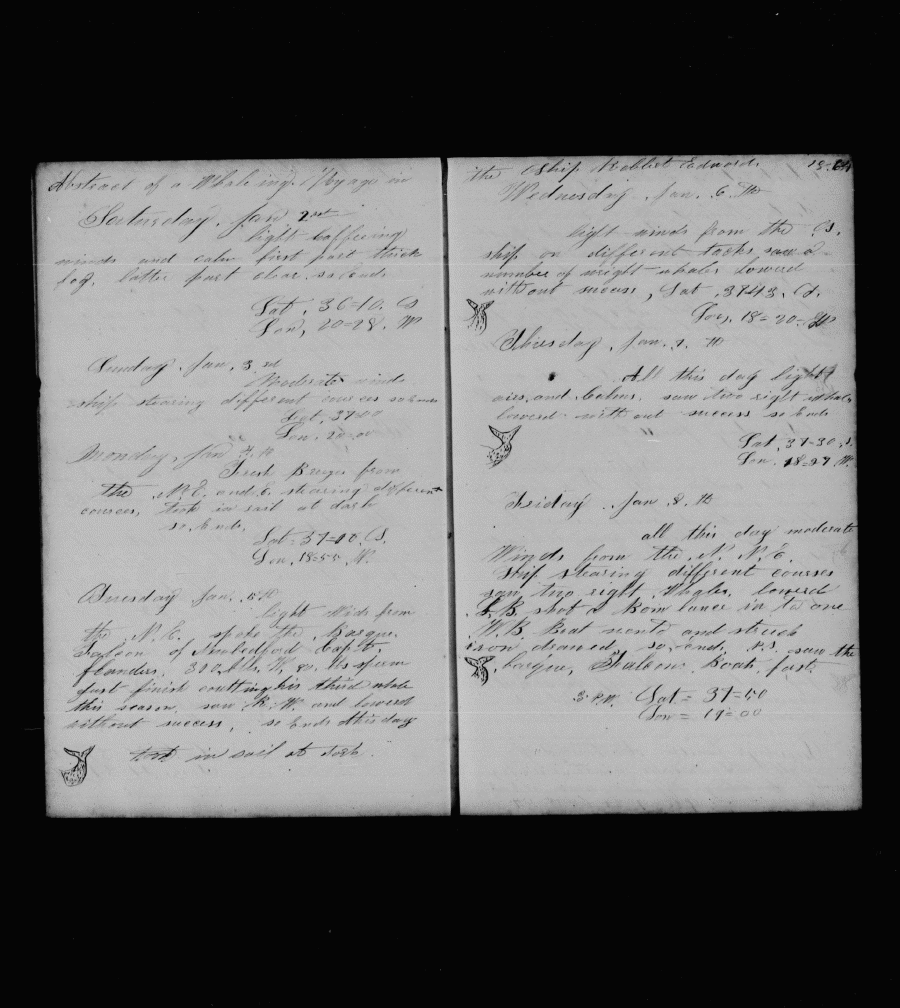 Abstract of a Whaleing Voyage in
Saturday, Jan 2nd
light baffeling
winds and calm first part thick
fog, latter part clear. so ends
Lat, 36=10. S
Lon, 20=28. W
Sunday, Jan, 3
Moderate winds
ship stearing different courses so ends
Lat, 37=00
Lon. 20=00
Monday, Jan 4th
Fresh Breeze from
the N.E. and E. stearing different
courses, took in sail at dark
so. Ends,
Lat=37=10. S.
Lon. 18=50 W.
Tuesday Jan. 5th
light winds from
the N.E. spoke the Barque
Falcon of Newbedford Capt,
Flanders, 300 bbls. W, 80. bbls sperm
just finish cutting his third whale
this season. saw R.W. and lowerd
without success, so Ends this day
took in sail at dark.
the Ship Robbert Edwards. 18=64
Wednesday, Jan. 6. Th
light winds from the S.
ship on different tacks, saw a
number of wright whales Lowerd
without sucess, Lat, 3743. S.
Lon, 18=20=W
Thursday, Jan. 7. Th
All this day light
airs. and. Calms. saw two right whales
lowerd without success so Ends
Lat, 37=30, S.
Lon. 18=27 W.
Friday. Jan. 8. Th
all this day moderate
Winds from the N. N.E.
Ship stearing different courses
saw two right Whales, lowerd
L.B. shot a Bom lance in to one
W.B. Beat and struck
iron drawed, so. Ends, P.S. saw the
barque, Falcon Boat fast.
3. P.M. Lat= 37=50
Lon= 19=00